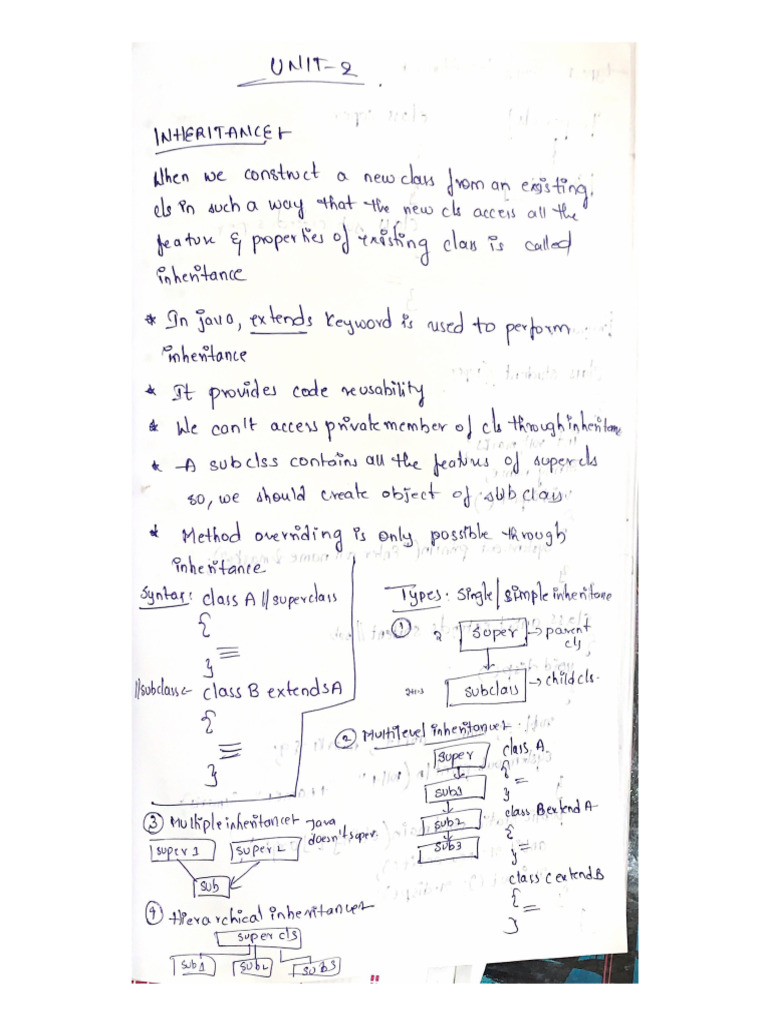 UNIT-2
INHERITANCE:
When we construct a new class from an existing
cls in such a way that the new cls access all the
feature & properties of existing class is called
inheritance
* In java, extends keyword is used to perform
inheritance
* It provides code reusability
* We can't access private member of cls through inheritance
* A subclss contains all the featurs of supercls
so, we should create object of subclass.
* Method overriding is only possible through
inheritance
Syntax: class A //superclass
{
}
//subclass ← class B extends A
{
}
Types: Single/simple inheritance
① super → parent
cls
subclass → child cls
② Multilevel inheritance:
super
sub1
sub2
sub3
class A
{
}
class B extend A
{
}
class C extend B
{
}
③ Multiple inheritance: java
doesn't super
super 1 super 2
sub
④ Hierarchical inheritance:
super cls
sub1 sub2 sub3